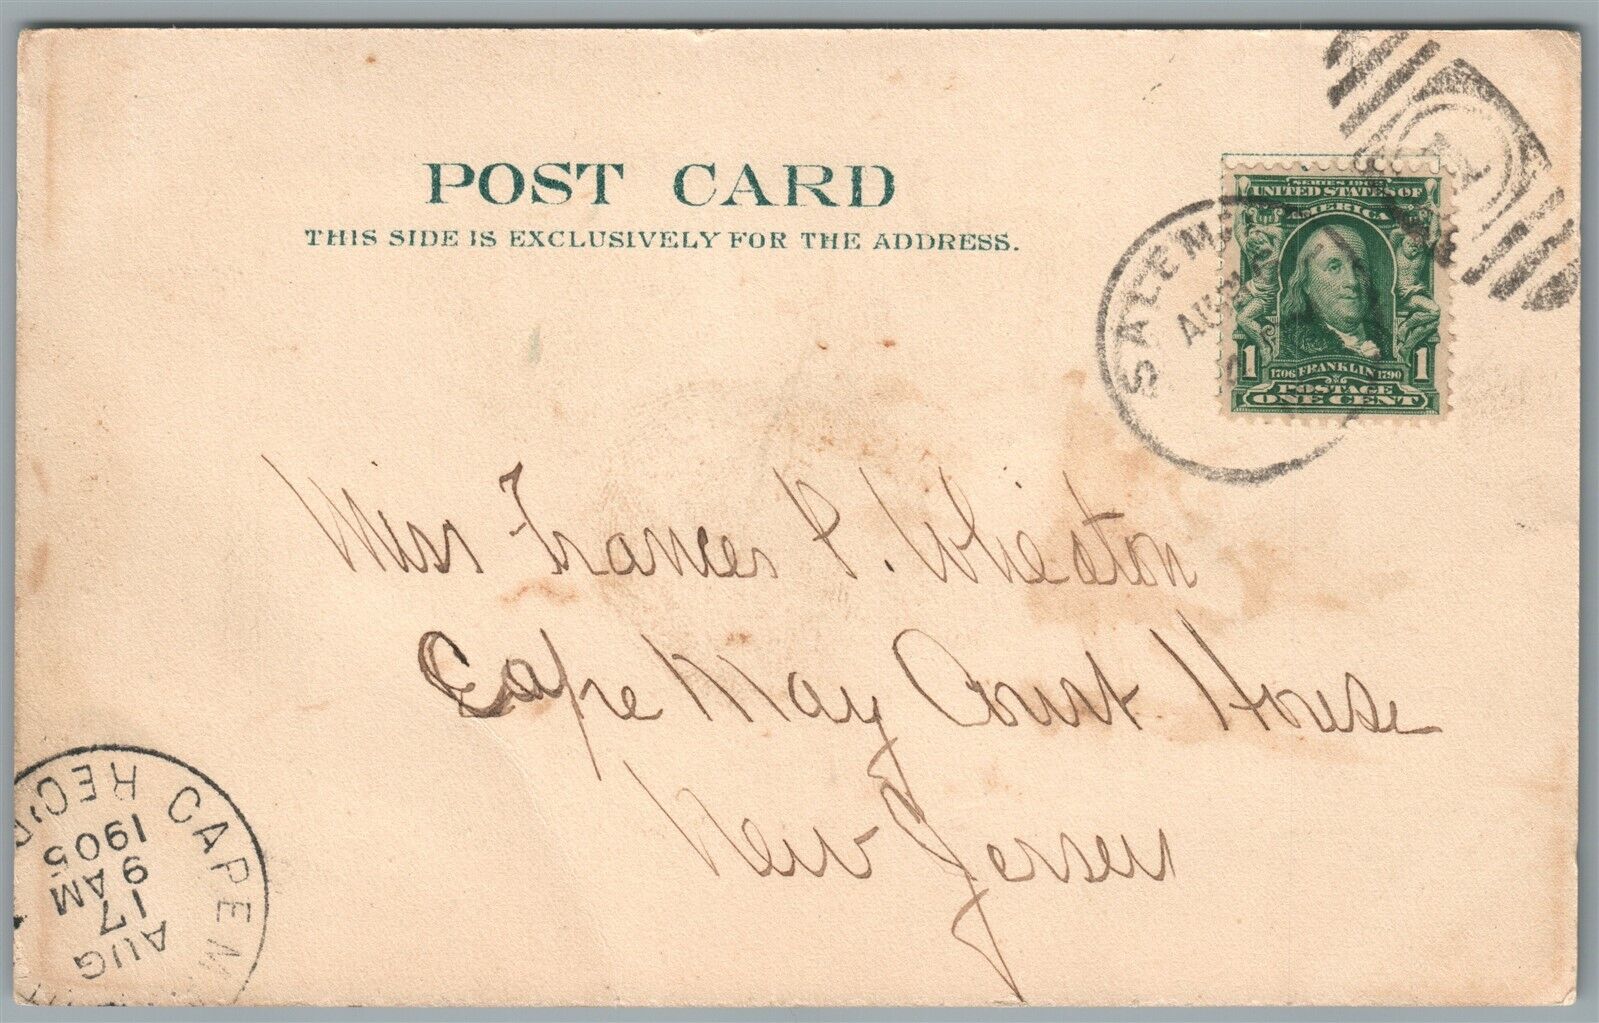 POST CARD
THIS SIDE IS EXCLUSIVELY FOR THE ADDRESS.
SERIES 1902
UNITED STATES OF
AMERICA
1 1706 FRANKLIN 1790 1
POSTAGE
ONE CENT
SALEM
AUG
Miss Frances P. Wheaton
Cape May Court House
New Jersey
CAPE M
REC'D
AUG
17
9 AM
1905